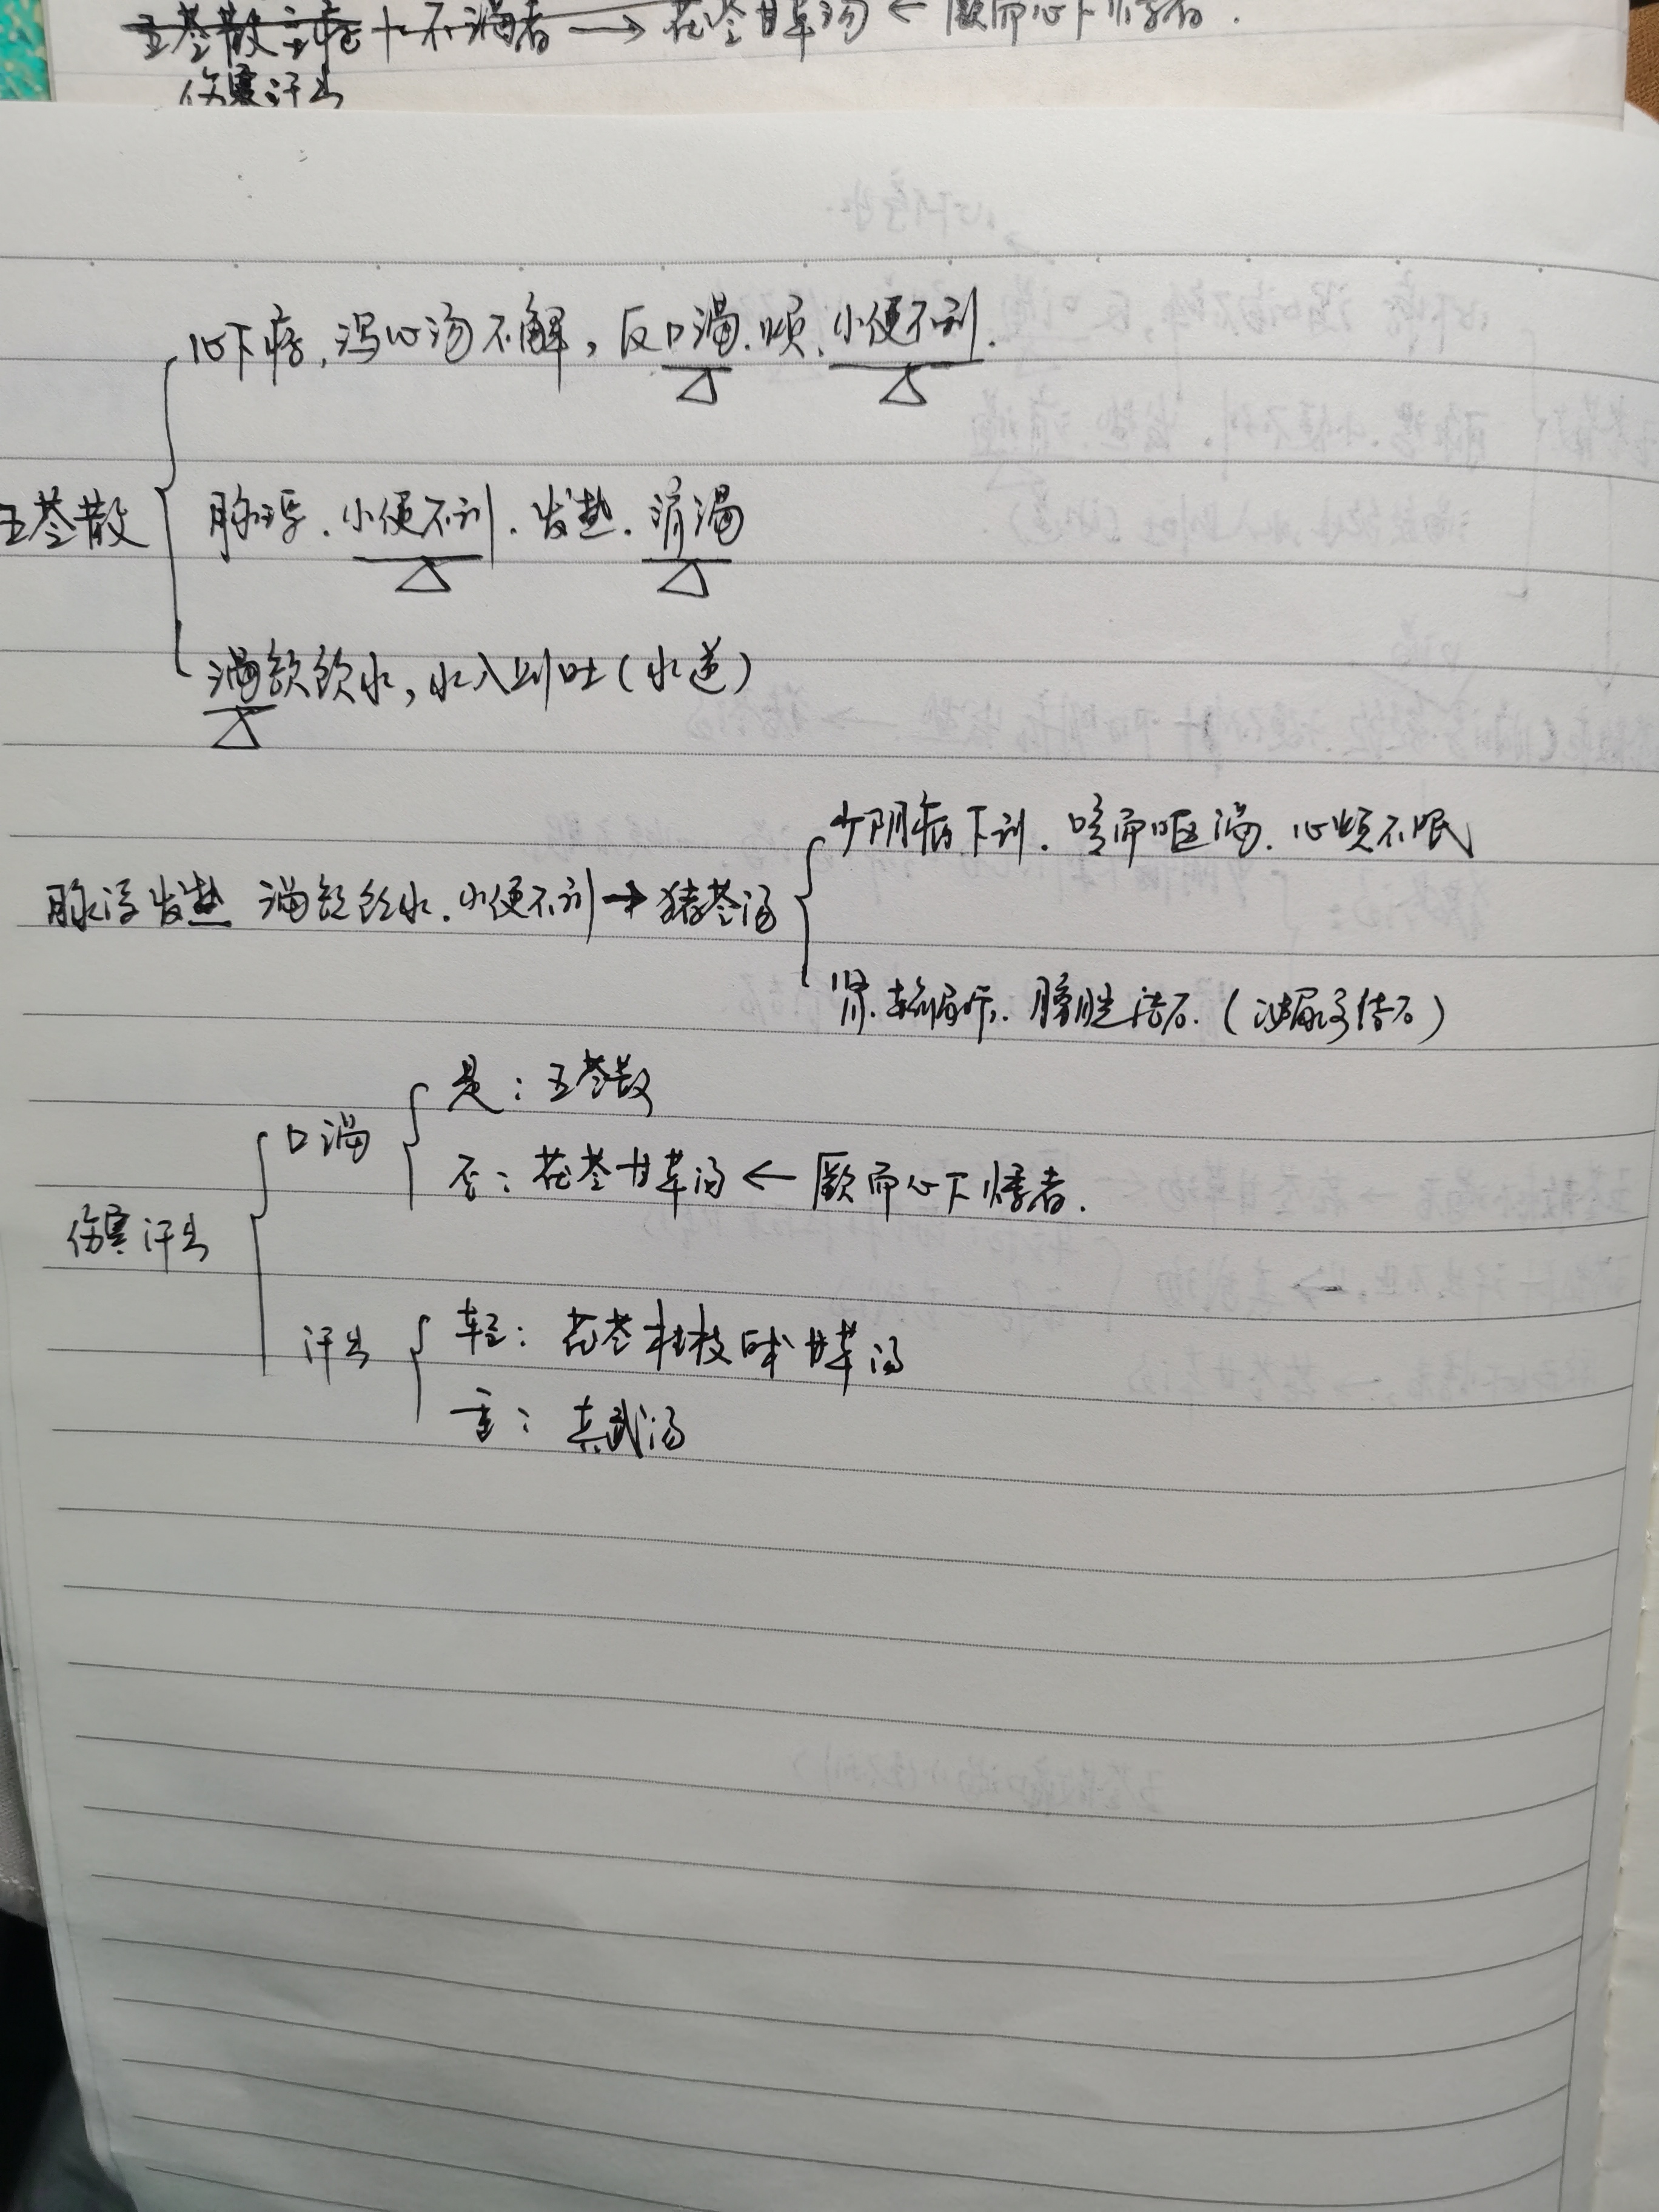 五苓散主症+不渴者→茯苓甘草汤←厥而心下悸者.
伤寒汗出
心下痞,泻心汤不解,反口渴.烦.小便不利.
五苓散
脉浮.小便不利.发热.消渴
渴欲饮水,水入则吐(水逆)
少阴病下利.咳而呕渴.心烦不眠
脉浮发热 渴欲饮水.小便不利→猪苓汤
肾.输尿管.膀胱结石.(泌尿系结石)
是:五苓散
口渴
否:茯苓甘草汤←厥而心下悸者.
伤寒汗出
轻:茯苓桂枝白术甘草汤
汗出
重:真武汤